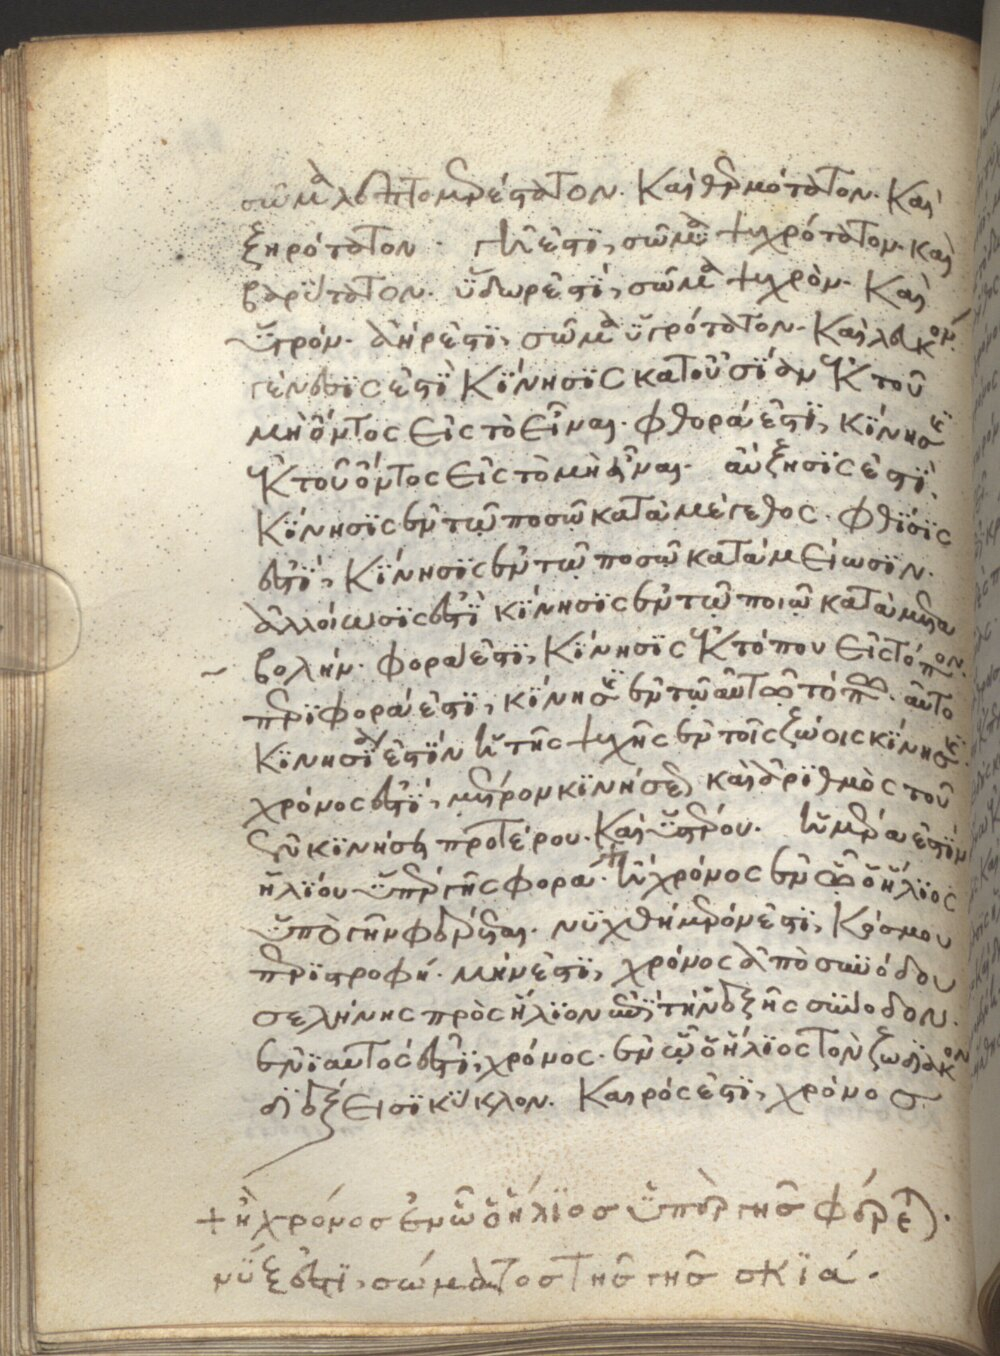 σῶμα λεπτομερέστατον. Καὶ θερμότατον. Καὶ
ξηρότατον. γῆ ἐστὶ, σῶμα ψυχρότατον. καὶ
βαρύτατον. ὕδωρ ἐστὶ, σῶμα ψυχρὸν. Καὶ
ὑγρόν. ἀήρ ἐστὶ, σῶμα ὑγρότατον. Καὶ λευκόν.
γένεσις ἐστὶ Κίνησις κατουσίαν ἐκ τοῦ
μὴ ὄντος εἰς τὸ εἶναι. φθορά ἐστὶ, κίνησις
ἐκ τοῦ ὄντος εἰς τὸ μὴ εἶναι. αὔξησις ἐστὶ,
Κίνησις ἐν τῷ ποσῷ κατὰ μέγεθος. φθίσις
ἐστὶ, Κίνησις ἐν τῷ ποσῷ κατὰ μείωσιν.
ἀλλοίωσις ἐστὶ κίνησις ἐν τῷ ποιῷ κατὰ μετα
βολήν. φορά ἐστὶ, Κίνησις ἐκ τόπου εἰς τόπον.
περιφορά ἐστὶ, κίνησις ἐν τῷ αὐτῷ τόπῳ. αὐτο
Κινησία ἐστὶν ἡ τῆς ψυχῆς ἐν τοῖς ζώοις κίνησις.
χρόνος ἐστὶ, μέτρον κινήσεως καὶ ἀριθμὸς τοῦ
ἐν κινήσει προτέρου. Καὶ ὑστέρου. ἡμέρα ἐστὶν
ἡλίου ὑπὲρ γῆς φορά. + ἢ χρόνος ἐν ᾧ ὁ ἥλιος
ὑπὸ γῆν φέρεται. νυχθήμερόν ἐστὶ, Κόσμου
περιστροφή. μήν ἐστὶ, χρόνος ἀπὸ συνόδου
σελήνης πρὸς ἥλιον ἐπὶ τὴν ἑξῆς σύνοδον.
ἐνιαυτός ἐστὶ, χρόνος. ἐν ᾧ ὁ ἥλιος τὸν ζωδιακὸν
διέξεισι κύκλον. Καιρός ἐστὶ, χρόνος
+ ἢ χρόνος ἐν ᾧ ὁ ἥλιος ὑπὲρ γῆς φέρεται.
νύξ ἐστὶ, σώματος τῆς γῆς σκιά.